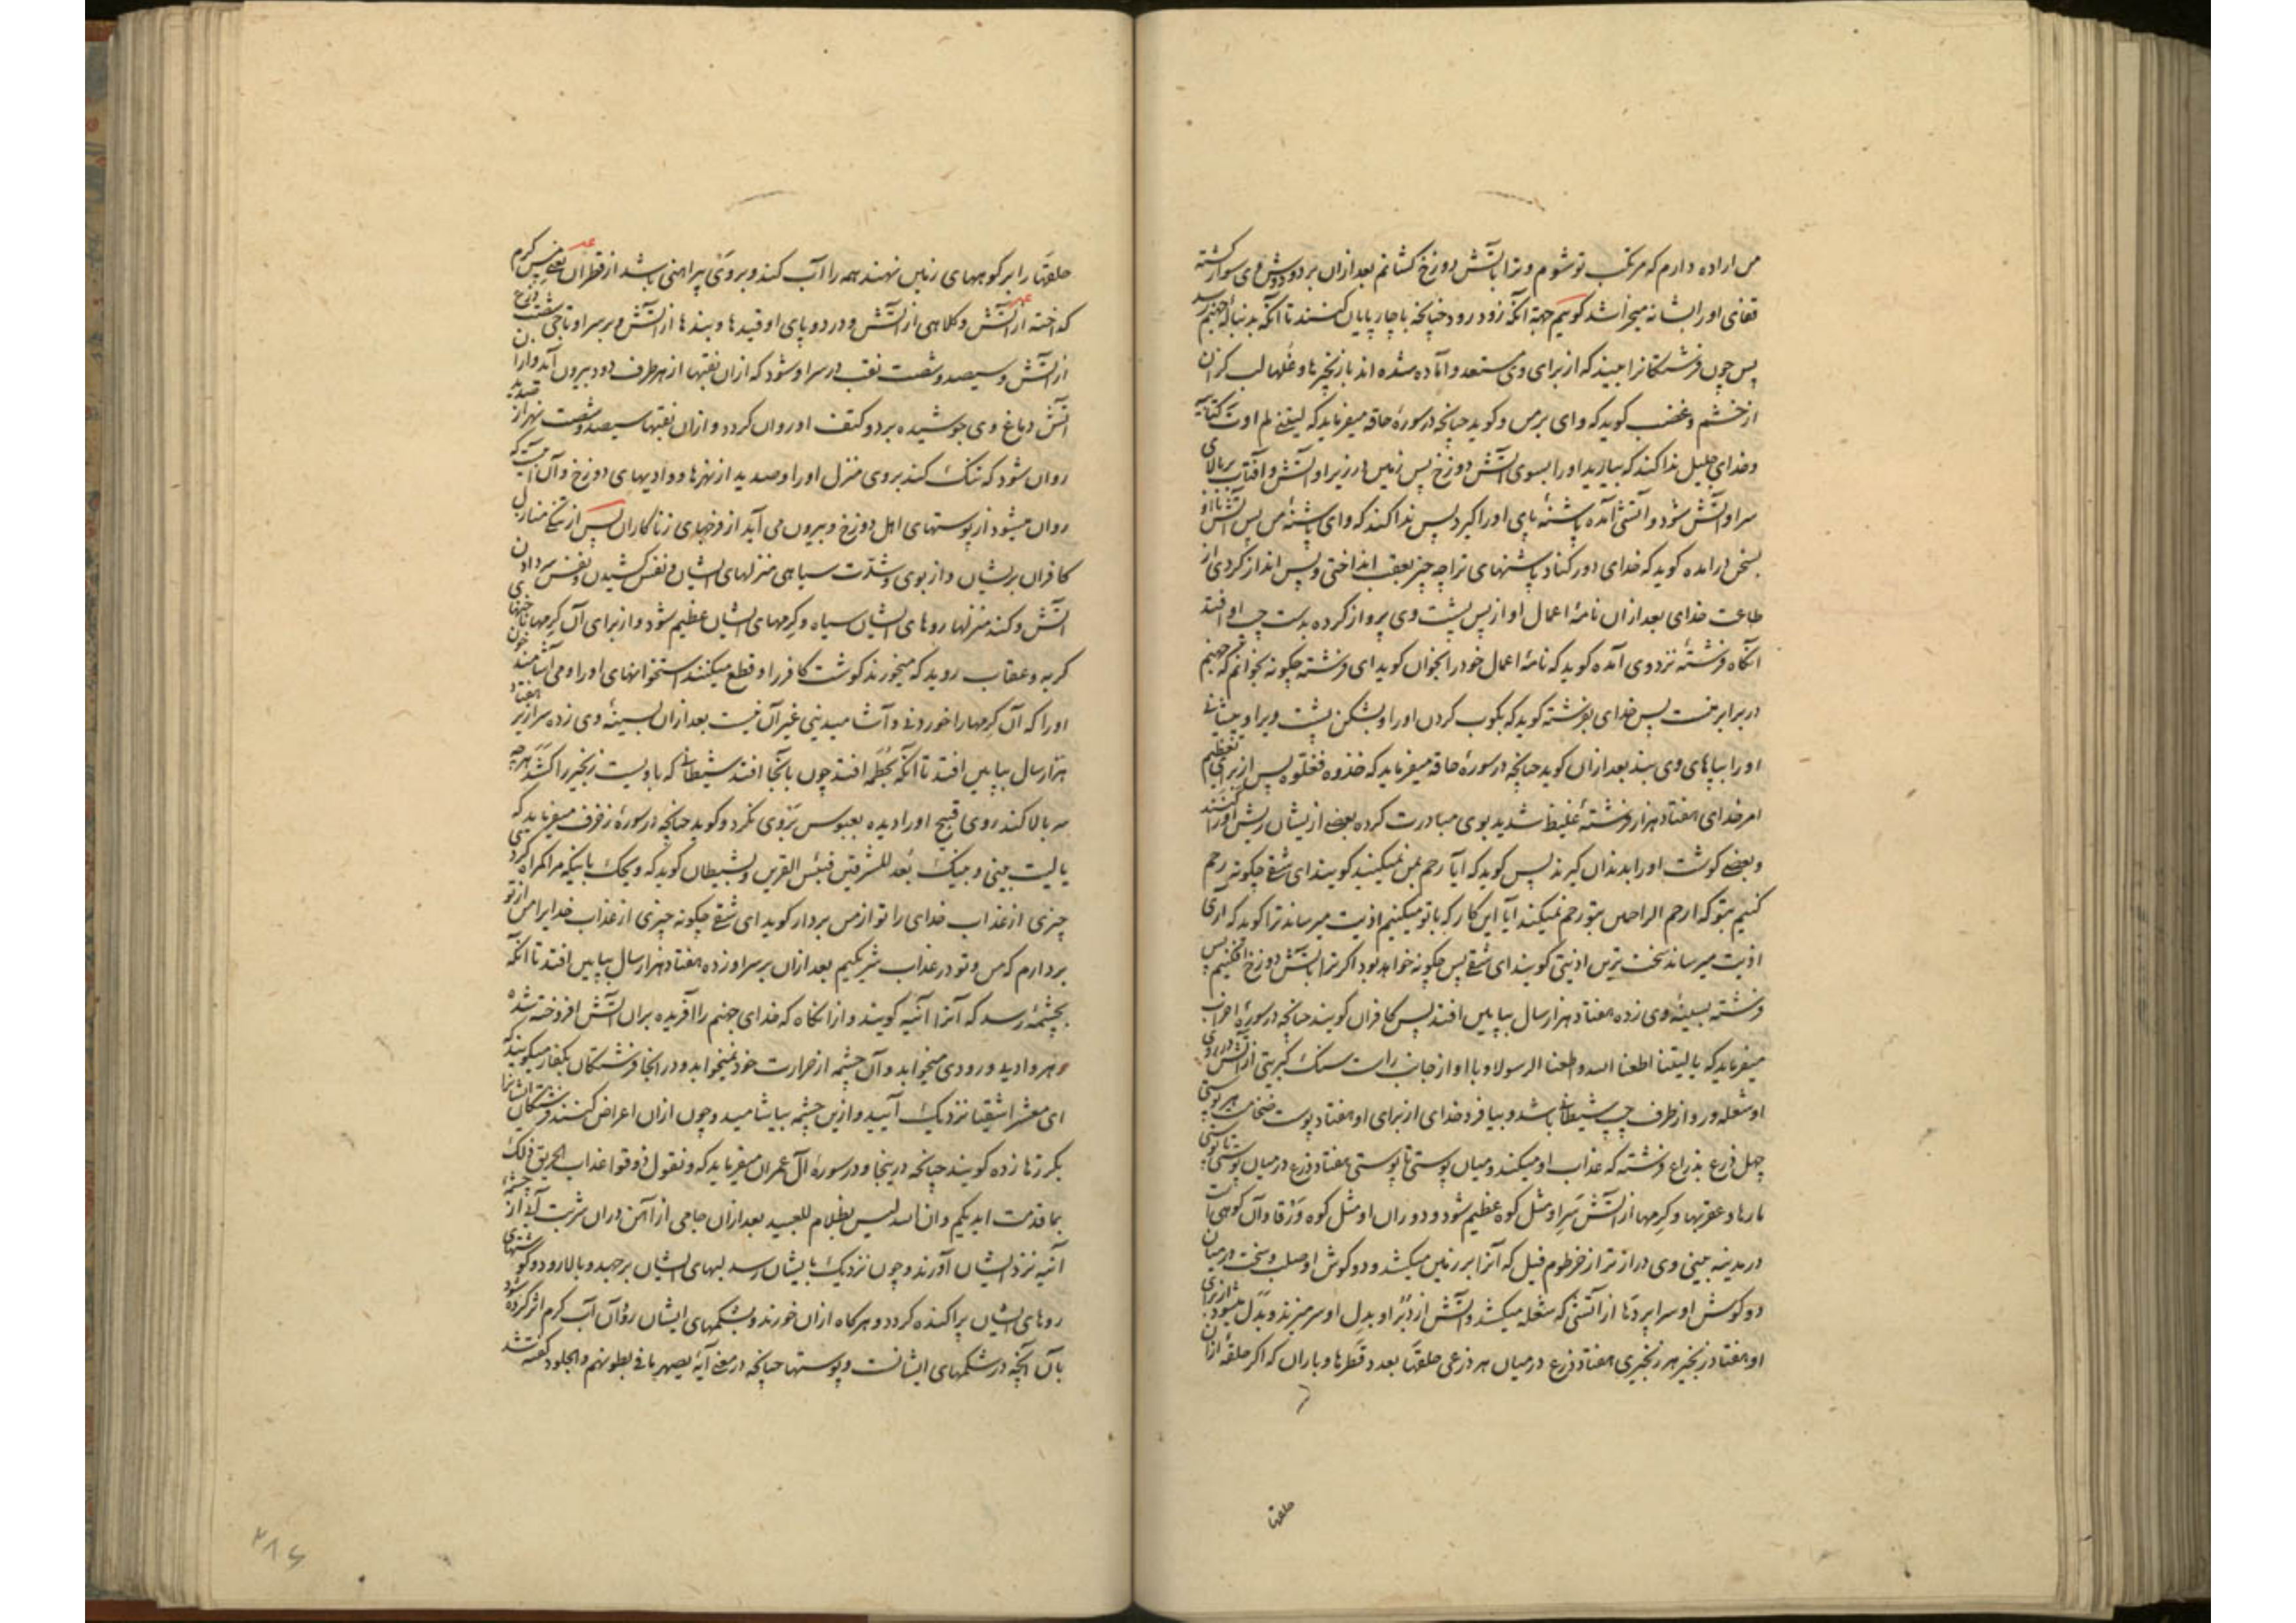 من اراده دارم که مرتکب تو شوم و ترا بآتش دوزخ کشانم بعد ازان بر دو دوش وی سوار کشته
قفای اورا بشانه میخراشد کوییم جهة آنکه زود رود چنانچه با چارپایان کنند تا آنکه بدنباله جهنم رسد
پس چون فرشتکانرا ببیند که از برای وی مستعد و آماده شده اند با زنجیرها و غلها لب کزان
از خشم و غضب کوید که وای بر من و کوید چنانچه در سورهٔ حاقه میفرماید که لیتنی لم اوت کتابیه
و خدای جلیل ندا کند که بیارید اورا بسوی آتش دوزخ پس زمین در زیر او آتش و آفتاب بر بالای
سر او آتش شود و آتشی آمده پاشنهٔ پای اورا کیرد پس ندا کند که وای پاشنهٔ من پس آتش با او
بسخن درآمده کوید که خدای دور کناد پاشنهای ترا چه چیز بعقب انداختی و پس انداز کردی از
طاعت خدای بعد ازان نامهٔ اعمال او از پس پشت وی پرواز کرده بدست چپ او افتد
آنکاه فرشتهٔ نزد وی آمده کوید که نامهٔ اعمال خود را بخوان کوید ای فرشته چکونه بخوانم که جهنم
در برابر منست پس خدای بفرشته کوید که بکوب کردن اورا و بشکن پشت ویرا و پیشانی
اورا بپاهای وی بند بعد ازان کوید چنانچه در سورهٔ حاقه میفرماید که خذوه فغلوه پس از برای تعظیم
امر خدای هفتاد هزار فرشتهٔ غلیظ شدید بوی مبادرت کرده بعضی ازیشان ریش اورا کنند
و بعضی کوشت اورا بدندان کیرند پس کوید که آیا رحم بمن نمیکنید کویند ای شقی چکونه رحم
کنیم بتو که ارحم الراحمین بتو رحم نمیکند آیا این کار که با تو میکنیم اذیت میرساند ترا کوید که آری
اذیت میرساند سخت ترین اذیتی کویند ای شقی پس چکونه خواهد بود اکر ترا بآتش دوزخ افکنیم پس
فرشته بسینهٔ وی زده هفتاد هزار سال بپایین افتد پس کافران کویند چنانچه در سورهٔ احزاب
میفرماید که یا لیتنا اطعنا الله و اطعنا الرسولا و با او از جانب راست سنک کبریتی از آتش در روی
او شعله ور و از طرف چپ شیطان باشد و بیافرد خدای از برای او هفتاد پوست ضخامت هر پوستی
چهل ذرع بذراع فرشته که عذاب او میکند و میان پوستی تا پوستی هفتاد ذرع در میان پوستی تا پوستی
مارها و عقربها و کرمها از آتش سر او مثل کوه عظیم شود و دو ران او مثل کوه ورقا و آن کوهی است
در مدینه بینی وی درازتر از خرطوم فیل که آنرا بر زمین میکشد و دو کوش او صلب و سخت در میان
دو کوش او سراپردها از آتشی که شعله میکشد و آتش از دبر او بدل او سر میزند و بدل میشود از برای
او هفتاد زنجیر هر زنجیری هفتاد ذرع در میان هر ذرعی حلقها بعدد قطرها و باران که اکر حلقهٔ ازان
حلقها
حلقها را بر کوههای زمین نهند همه را آب کند و بر وی پیراهنی باشد از قطران یعنی مس کرم
کداخته از آتش و کلاهی از آتش و در دو پای او قیدها و بندها از آتش و بر سر او تاجی شصت ذرع
از آتش و سیصد و شصت نقب در سر او شود که ازان نقبها از هر طرف دود بیرون آید و ازان
آتش دماغ وی جوشیده بر دو کتف او روان کردد و ازان نقبها سیصد و شصت نهر از صدید
روان شود که تنک کند بر وی منزل اورا و صدید از نهرها و وادیهای دوزخ و آن آبیست که
روان میشود از پوستهای اهل دوزخ و بیرون می آید از فرجهای زناکاران پس از تنکی منازل
کافران بریشان و از بوی و شدّت سیاهی منزلهای ایشان و نفس کشیدن و نفس سر دادن
آتش و کند منزلها روهای ایشان سیاه و کرمهای ایشان عظیم شود و از برای آن کرمها ناخنهای
کربه و عقاب روید که میخورند کوشت کافر را و قطع میکنند استخوانهای اورا و می آشامند خون
اورا که آن کرمها را خوردنی و آشامیدنی غیر آن نیست بعد ازان بسینهٔ وی زده سرازیر هفتاد
هزار سال بپایین افتد تا آنکه بحُطَمه افتد چون بآنجا افتد شیطان که با ویست زنجیر را کشد هر چه
سر بالا کند روی قبیح اورا دیده بعبوس بروی نکرد و کوید چنانچه در سورهٔ زخرف میفرماید که
یا لیت بینی و بینک بُعد المشرقین فبئس القرین و بشیطان کوید که ویحک با اینکه مرا کمراه کردی
چیزی از عذاب خدای را تو از من بردار کوید ای شقی چکونه چیزی از عذاب خدایرا من از تو
بردارم که من و تو در عذاب شریکیم بعد ازان بر سر او زده هفتاد هزار سال بپایین افتد تا آنکه
بچشمهٔ رسد که آنرا آنیه کویند و ازانکاه که خدای جهنم را آفریده بران آتش افروخته شده
و هر وادی و رودی میخوابد و آن چشمه از حرارت خود نمیخوابد و در انجا فرشتکان بکفار میکویند که
ای معشر اشقیا نزدیک آیید و ازین چشمه بیاشامید و چون ازان اعراض کنند فرشتکان ایشانرا
بکرزها زده کویند چنانچه درینجا و در سورهٔ آل عمران میفرماید که و نقول ذوقوا عذاب الحریق ذلک
بما قدمت ایدیکم و ان الله لیس بظلام للعبید بعد ازان جامی از آهن دران شربت آب از چشمهٔ
آنیه نزد ایشان آورند و چون نزدیک بایشان رسد لبهای ایشان برجهد و بالا رود و کوشتهای
روهای ایشان پراکنده کردد و هرکاه ازان خورند و بشکمهای ایشان رود آن آب کرم اثر کرده شود
بآن آنچه در شکمهای ایشانست و پوستها چنانچه در معنی آیهٔ یصهر به ما فی بطونهم و الجلود کفته شد
۲۸۶